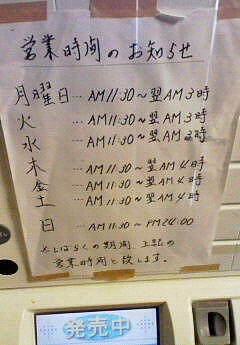 営業時間のお知らせ
月曜日 … AM11:30～翌AM3時
火 … AM11:30～翌AM3時
水 … AM11:30～翌AM3時
木 … AM11:30～翌AM4時
金 … AM11:30～翌AM4時
土 … AM11:30～翌AM4時
日 … AM11:30～PM24:00
※しばらくの期間、上記の
営業時間と致します。
発売中